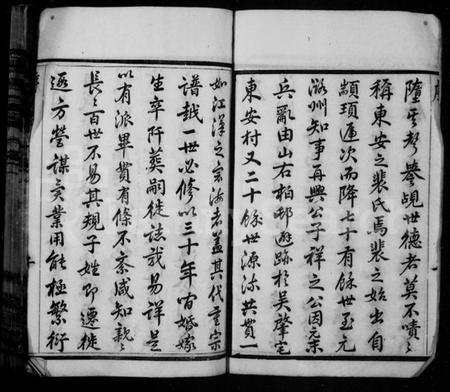 序
隆聲譽觇世德者莫不嘖〻
稱東安之裴氏焉裴之始出自
顓頊遞次而降七十有餘世至元
潞州知事再興公子祥之公因元末
兵亂由山右柏邨避跡於吴肇宅
東安村又二十餘世源流共貫一
如江洋之宗海者蓋其代重宗
譜越一世必修以三十年而婚嫁
生卒阡葬嗣徙誌哉易詳是
以有派畢貫有條不紊咸知親〻
長〻百世不易其規子姓即遷徙
遐方營謀實業用能極繁衍